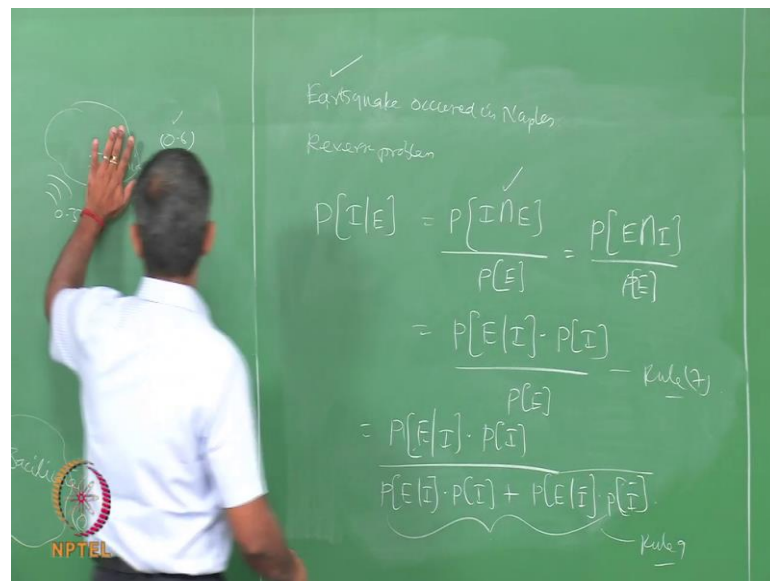 (0.6)
0.3
Earthquake occured in Naples
Reverse problem
P[I/E] = P[I∩E] / P[E] = P[E∩I] / P[E]
= P[E|I] · P[I] / P[E] — Rule (7)
= P[E|I] · P[I] / P[E|I] · P[I] + P[E|Ī] · P[Ī]
Rule 9
NPTEL